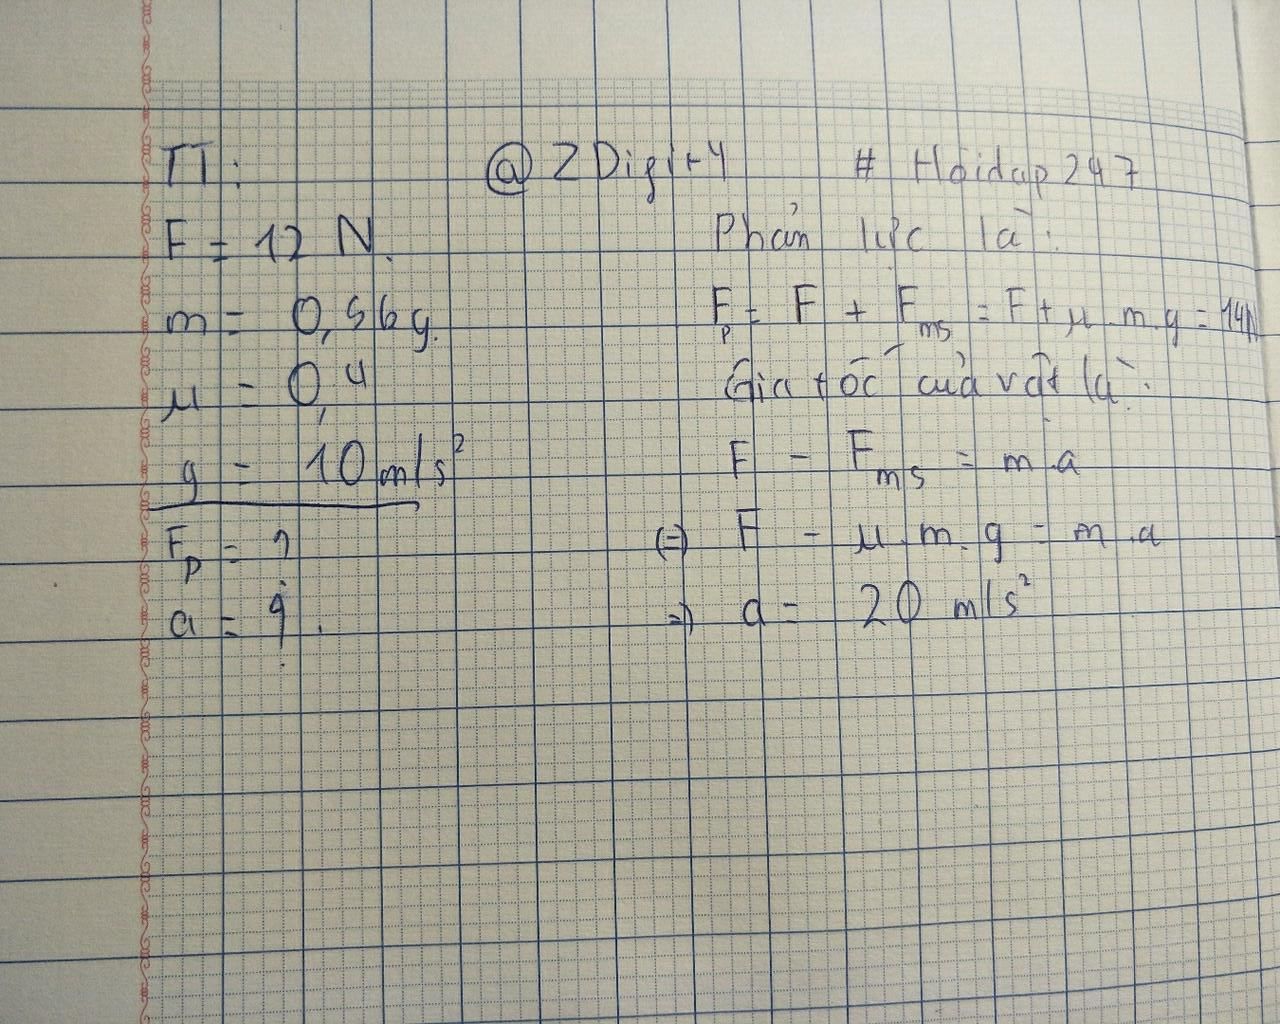 TT:
F = 12 N.
m = 0,5kg.
μ = 0,4
g = 10 m/s²
Fp = ?
a = ?.
@ZDigit4 # Hoidap247
Phản lực là:
Fp = F + Fms = F + μ.m.g = 14N
Gia tốc của vật là:
F - Fms = m.a
(=) F - μ.m.g = m.a
=) a = 20 m/s²